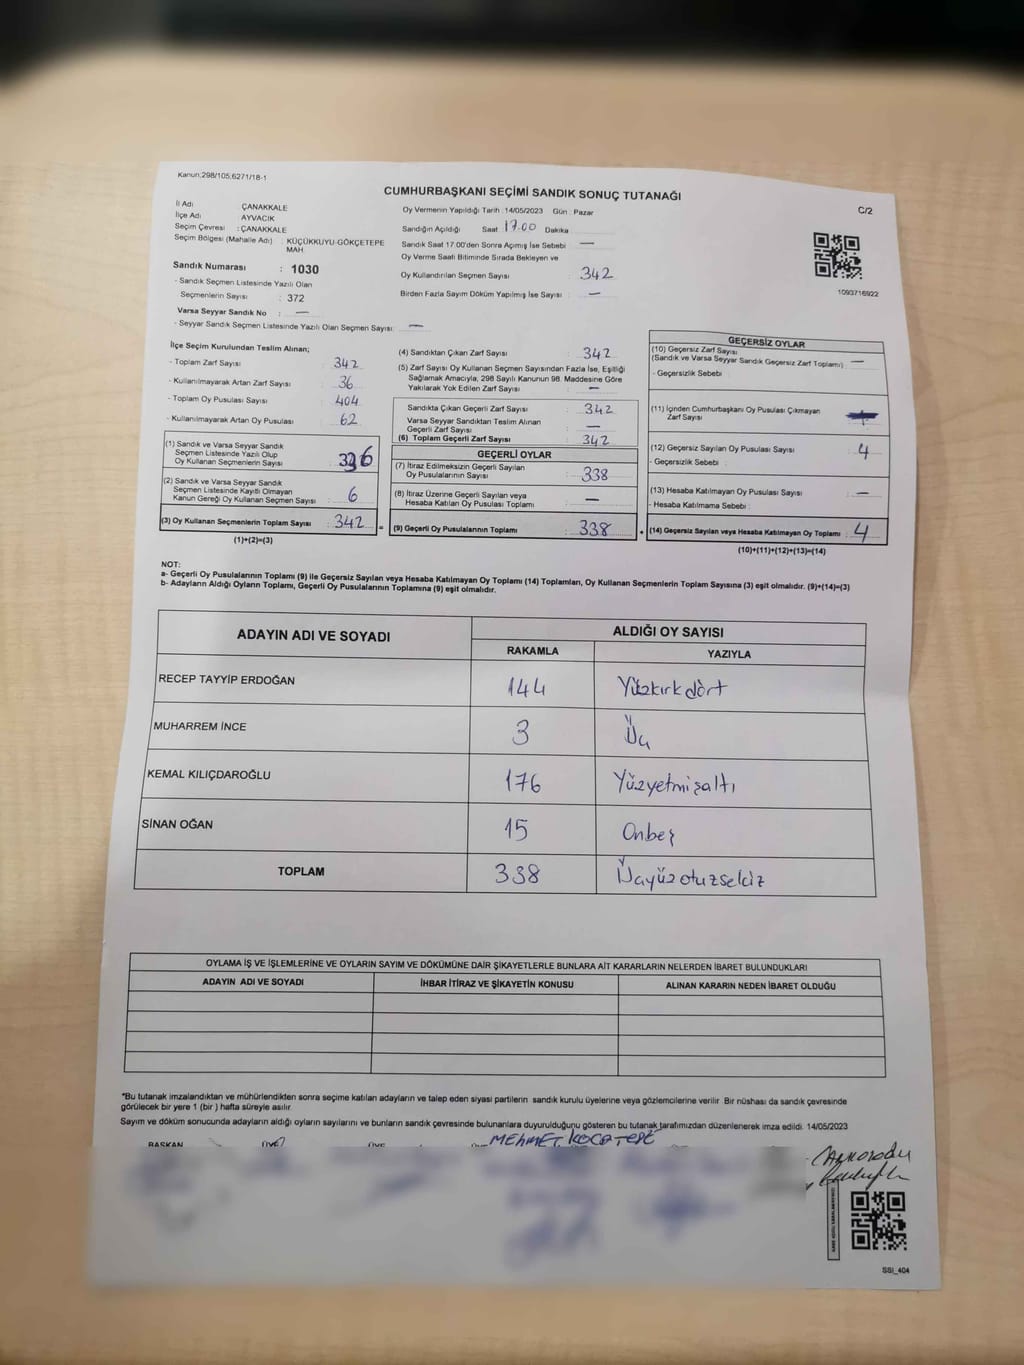 Kanun;298/105,6271/18-1
CUMHURBAŞKANI SEÇİMİ SANDIK SONUÇ TUTANAĞI
C/2
İl Adı ÇANAKKALE
İlçe Adı AYVACIK
Seçim Çevresi : ÇANAKKALE
Seçim Bölgesi (Mahalle Adı) : KÜÇÜKKUYU-GÖKÇETEPE
MAH.
Sandık Numarası : 1030
- Sandık Seçmen Listesinde Yazılı Olan
Seçmenlerin Sayısı : 372
Varsa Seyyar Sandık No : —
- Seyyar Sandık Seçmen Listesinde Yazılı Olan Seçmen Sayısı: —
Oy Vermenin Yapıldığı Tarih : 14/05/2023 Gün : Pazar
Sandığın Açıldığı Saat : 17.00 Dakika
Sandık Saat 17.00'den Sonra Açımış İse Sebebi : —
Oy Verme Saati Bitiminde Sırada Bekleyen ve
Oy Kullandırılan Seçmen Sayısı : 342
Birden Fazla Sayım Döküm Yapılmış İse Sayısı : —
1093716922
İlçe Seçim Kurulundan Teslim Alınan;
- Toplam Zarf Sayısı : 342
- Kullanılmayarak Artan Zarf Sayısı : 36
- Toplam Oy Pusulası Sayısı : 404
- Kullanılmayarak Artan Oy Pusulası : 62
(1) Sandık ve Varsa Seyyar Sandık
Seçmen Listesinde Yazılı Olup
Oy Kullanan Seçmenlerin Sayısı : 336
(2) Sandık ve Varsa Seyyar Sandık
Seçmen Listesinde Kayıtlı Olmayan
Kanun Gereği Oy Kullanan Seçmen Sayısı : 6
(3) Oy Kullanan Seçmenlerin Toplam Sayısı : 342 =
(1)+(2)=(3)
(4) Sandıktan Çıkan Zarf Sayısı : 342
(5) Zarf Sayısı Oy Kullanan Seçmen Sayısından Fazla İse, Eşitliği
Sağlamak Amacıyla, 298 Sayılı Kanunun 98. Maddesine Göre
Yakılarak Yok Edilen Zarf Sayısı : —
Sandıkta Çıkan Geçerli Zarf Sayısı : 342
Varsa Seyyar Sandıktan Teslim Alınan
Geçerli Zarf Sayısı : —
(6) Toplam Geçerli Zarf Sayısı : 342
GEÇERLİ OYLAR
(7) İtiraz Edilmeksizin Geçerli Sayılan
Oy Pusulalarının Sayısı : 338
(8) İtiraz Üzerine Geçerli Sayılan veya
Hesaba Katılan Oy Pusulası Toplamı : —
(9) Geçerli Oy Pusulalarının Toplamı : 338 +
GEÇERSİZ OYLAR
(10) Geçersiz Zarf Sayısı
(Sandık ve Varsa Seyyar Sandık Geçersiz Zarf Toplamı) : —
- Geçersizlik Sebebi :
(11) İçinden Cumhurbaşkanı Oy Pusulası Çıkmayan
Zarf Sayısı :
(12) Geçersiz Sayılan Oy Pusulası Sayısı : 4
- Geçersizlik Sebebi :
(13) Hesaba Katılmayan Oy Pusulası Sayısı : —
- Hesaba Katılmama Sebebi :
(14) Geçersiz Sayılan veya Hesaba Katılmayan Oy Toplamı : 4
(10)+(11)+(12)+(13)=(14)
NOT:
a- Geçerli Oy Pusulalarının Toplamı (9) ile Geçersiz Sayılan veya Hesaba Katılmayan Oy Toplamı (14) Toplamları, Oy Kullanan Seçmenlerin Toplam Sayısına (3) eşit olmalıdır. (9)+(14)=(3)
b- Adayların Aldığı Oyların Toplamı, Geçerli Oy Pusulalarının Toplamına (9) eşit olmalıdır.
ADAYIN ADI VE SOYADI ALDIĞI OY SAYISI
RAKAMLA YAZIYLA
RECEP TAYYİP ERDOĞAN 144 Yüzkırkdört
MUHARREM İNCE 3 Üç
KEMAL KILIÇDAROĞLU 176 Yüzyetmişaltı
SİNAN OĞAN 15 Onbeş
TOPLAM 338 Üçyüzotuzsekiz
OYLAMA İŞ VE İŞLEMLERİNE VE OYLARIN SAYIM VE DÖKÜMÜNE DAİR ŞİKAYETLERLE BUNLARA AİT KARARLARIN NELERDEN İBARET BULUNDUKLARI
ADAYIN ADI VE SOYADI İHBAR İTİRAZ VE ŞİKAYETİN KONUSU ALINAN KARARIN NEDEN İBARET OLDUĞU
*Bu tutanak imzalandıktan ve mühürlendikten sonra seçime katılan adayların ve talep eden siyasi partilerin sandık kurulu üyelerine veya gözlemcilerine verilir. Bir nüshası da sandık çevresinde
görülecek bir yere 1 (bir ) hafta süreyle asılır.
Sayım ve döküm sonucunda adayların aldığı oyların sayılarını ve bunların sandık çevresinde bulunanlara duyurulduğunu gösteren bu tutanak tarafımızdan düzenlenerek imza edildi. 14/05/2023
BAŞKAN ÜYE ÜYE MEHMET KOCATEPE
SSI_404